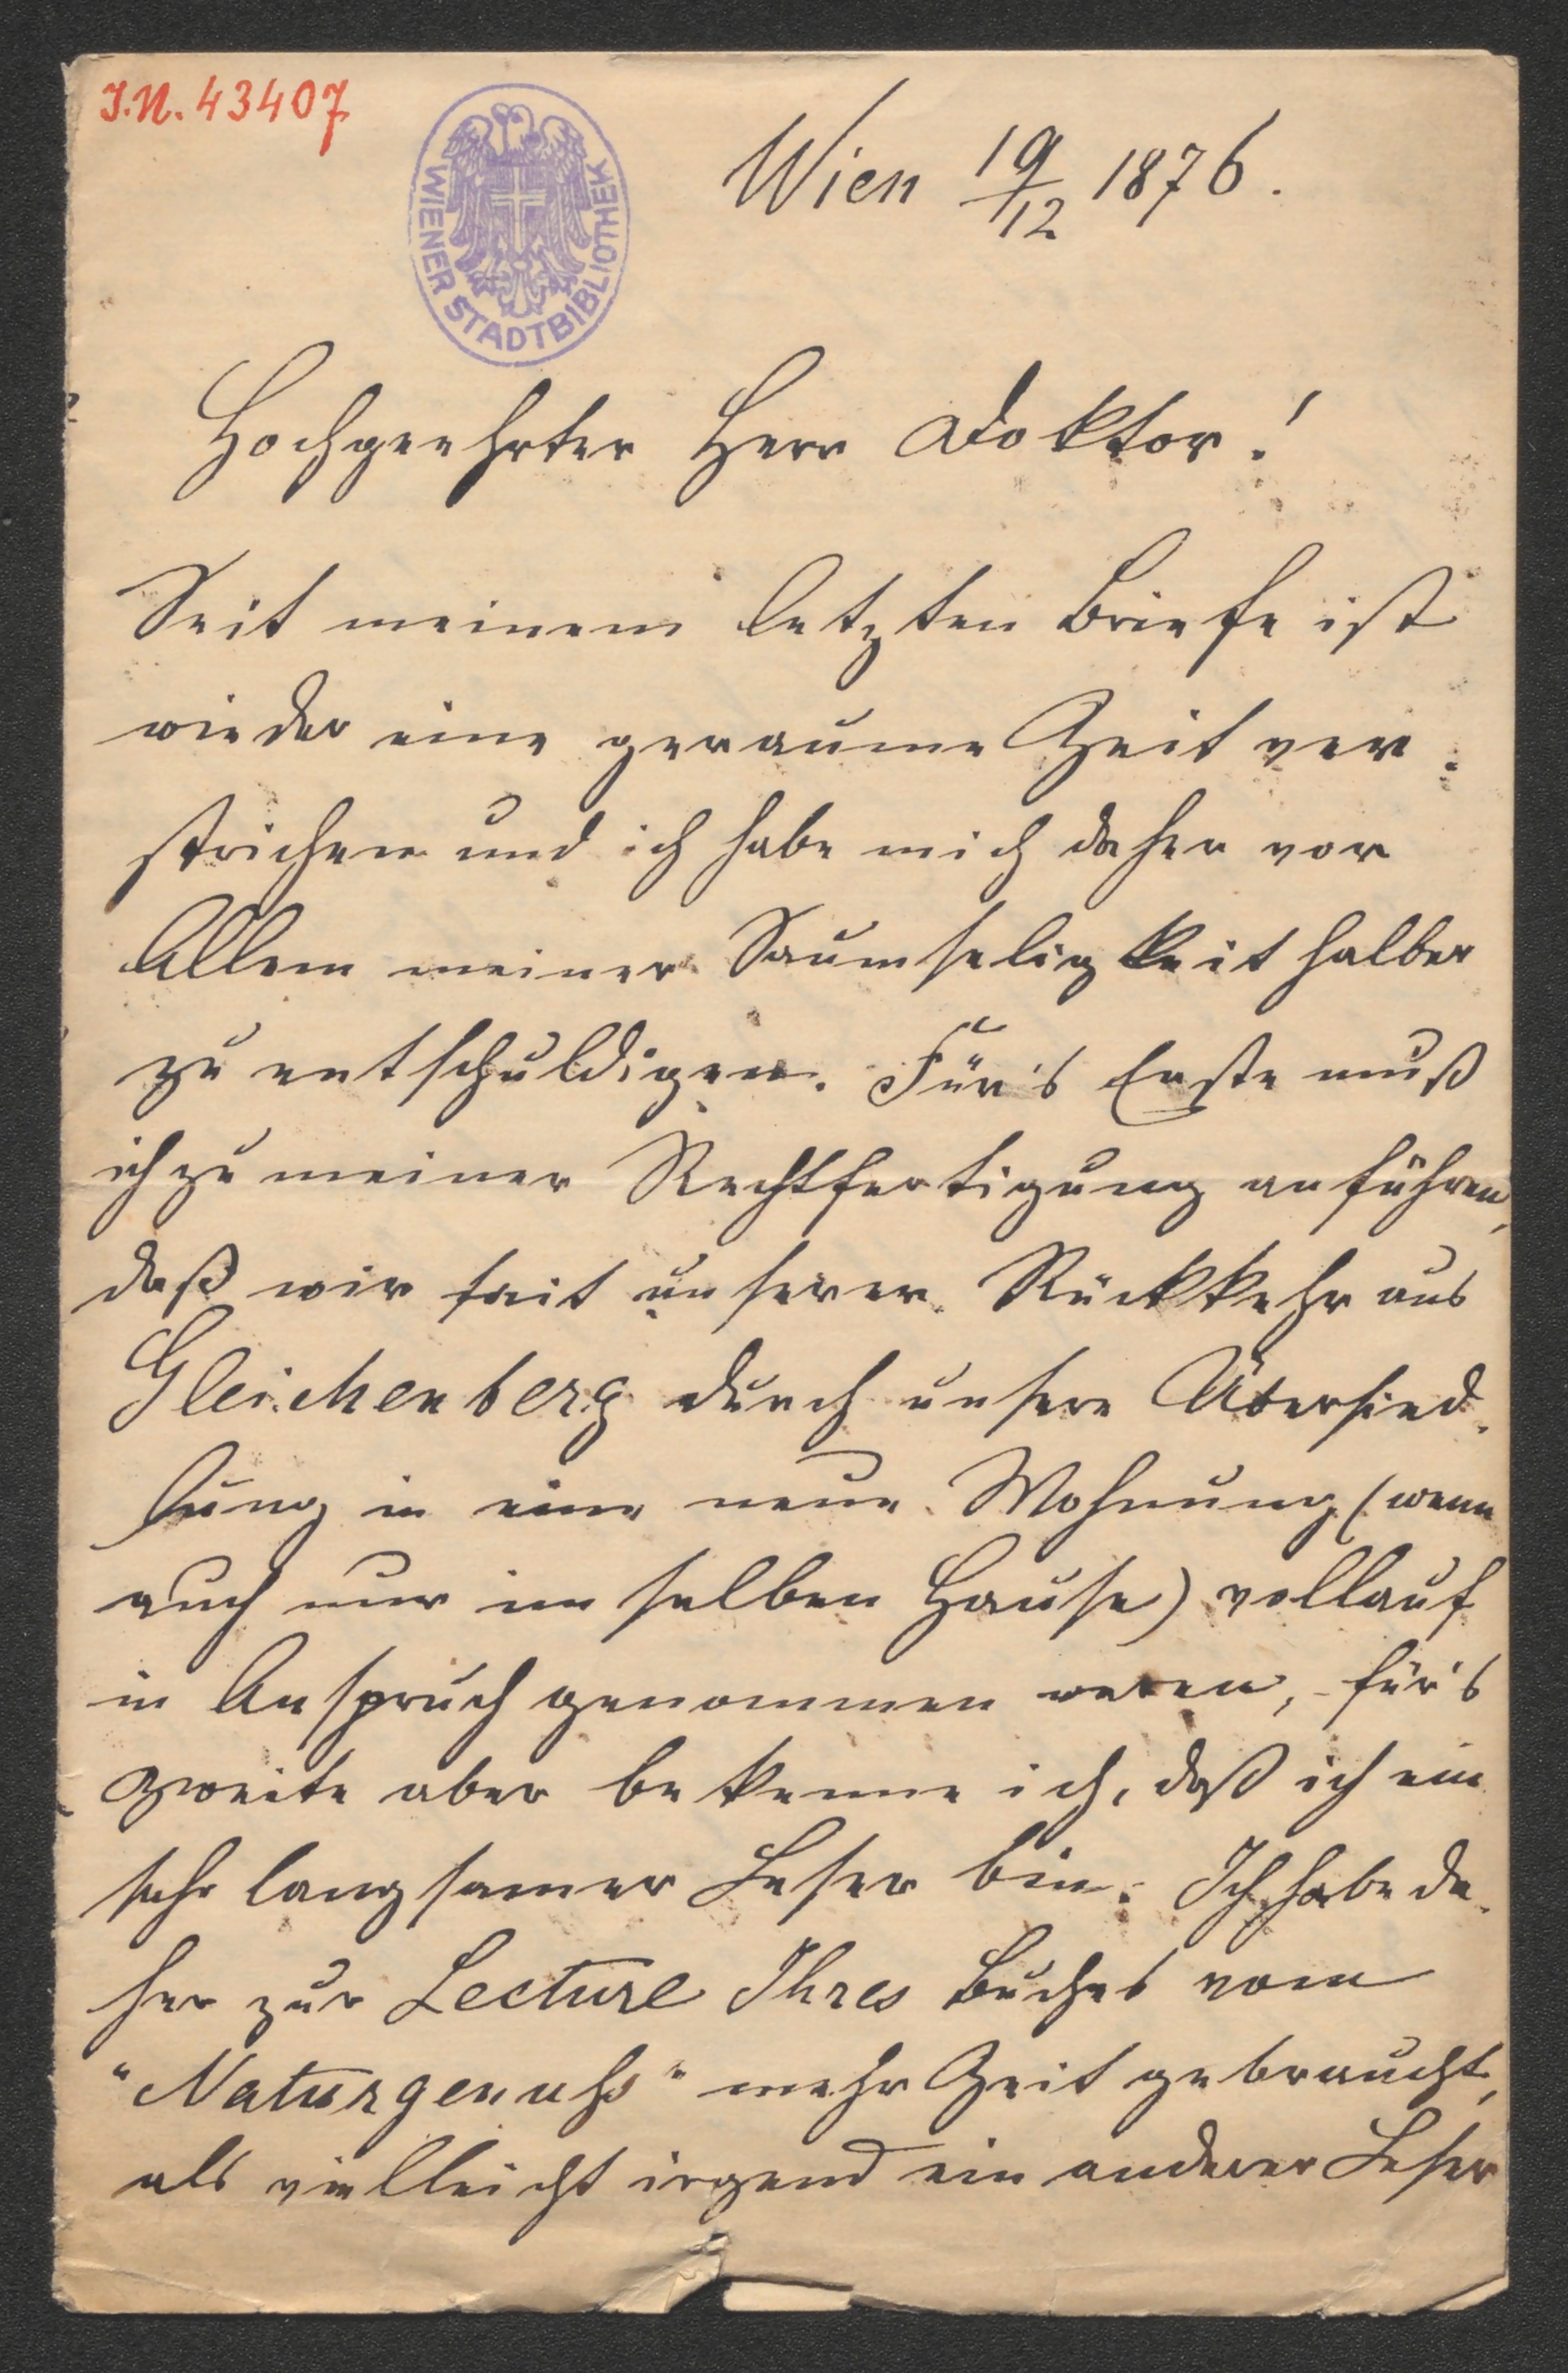 I.N. 43407
WIENER STADTBIBLIOTHEK
Wien 19/12 1876.
Hochgeehrter Herr Doktor!
Seit meinem letzten Briefe ist
wieder eine geraume Zeit ver-
strichen und ich habe mich daher vor
Allem meiner Saumseligkeit halber
zu entschuldigen. Für's Erste muß
ich zu meiner Rechtfertigung anführen,
daß wir seit unserer Rückkehr aus
Gleichenberg durch unsere Übersied-
lung in eine neue Wohnung (wenn
auch nur im selben Hause) vollauf
in Anspruch genommen waren, - für's
zweite aber bekenne ich, daß ich ein
sehr langsamer Leser bin. Ich habe da-
her zur Lecture Ihres Buches vom
"Naturgenuß" mehr Zeit gebraucht,
als vielleicht irgend ein anderer Leser